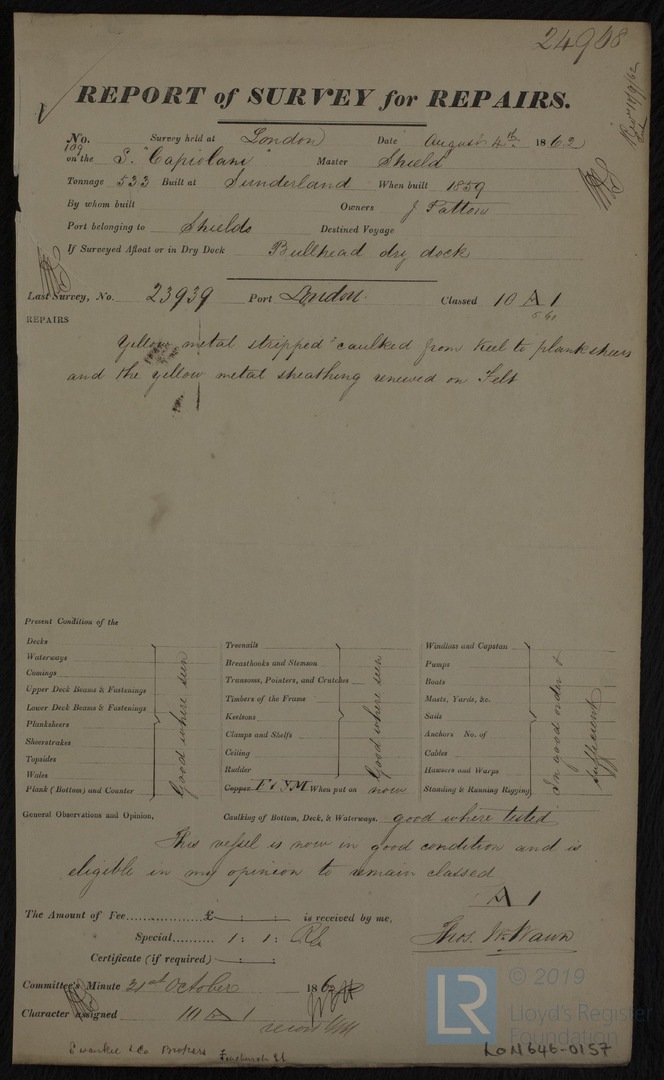 24908
REPORT of SURVEY for REPAIRS.
No. 109 Survey held at London Date August 4th 1862
on the S. "Capiolani" Master Shield
Tonnage 533 Built at Sunderland When built 1859
By whom built Owners J Patton
Port belonging to Shields Destined Voyage
If Surveyed Afloat or in Dry Dock Bullhead dry dock
Last Survey, No. 23939 Port London. Classed 10 A 1
REPAIRS
Yellow metal stripped caulked from keel to planksheers
and the yellow metal sheathing renewed on Felt
Present Condition of the
Decks
Waterways
Comings
Upper Deck Beams & Fastenings
Lower Deck Beams & Fastenings
Planksheers
Sheerstrakes
Topsides
Wales
Plank (Bottom) and Counter
Good where seen
Treenails
Breasthooks and Stemson
Transoms, Pointers, and Crutches
Timbers of the Frame
Keelsons
Clamps and Shelfs
Ceiling
Rudder
Copper F & YM When put on now
Good where seen
Windlass and Capstan
Pumps
Boats
Masts, Yards, &c.
Sails
Anchors No. of
Cables
Hawsers and Warps
Standing & Running Rigging
In good order & sufficient
General Observations and Opinion, Caulking of Bottom, Deck, & Waterways. good where tested
This vessel is now in good condition and is
eligible in my opinion to remain classed
A 1
The Amount of Fee £ : : is received by me,
Special 1 : 1 :
Certificate (if required) : :
Committee's Minute 21st October 186
Character assigned 10 A 1
& Co Brokers Fenchurch St
© 2019
LR
Lloyd's Register
Foundation
LON646-0157